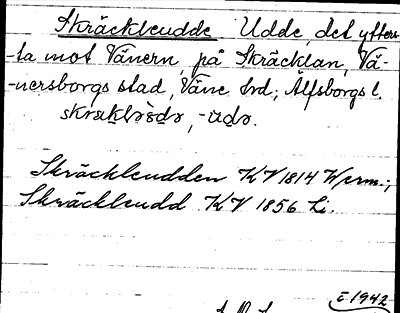 Skräckleudde Udde, det ytters-
-ta mot Vänern, på Skräcklan, Vä-
-nersborgs stad, Väne hrd; Älfsborgs l.
skrækləsdə, -udə.
Skräckleudden KV 1814 Werm.;
Skräckleudd. KV 1856 Li.
I. 1942